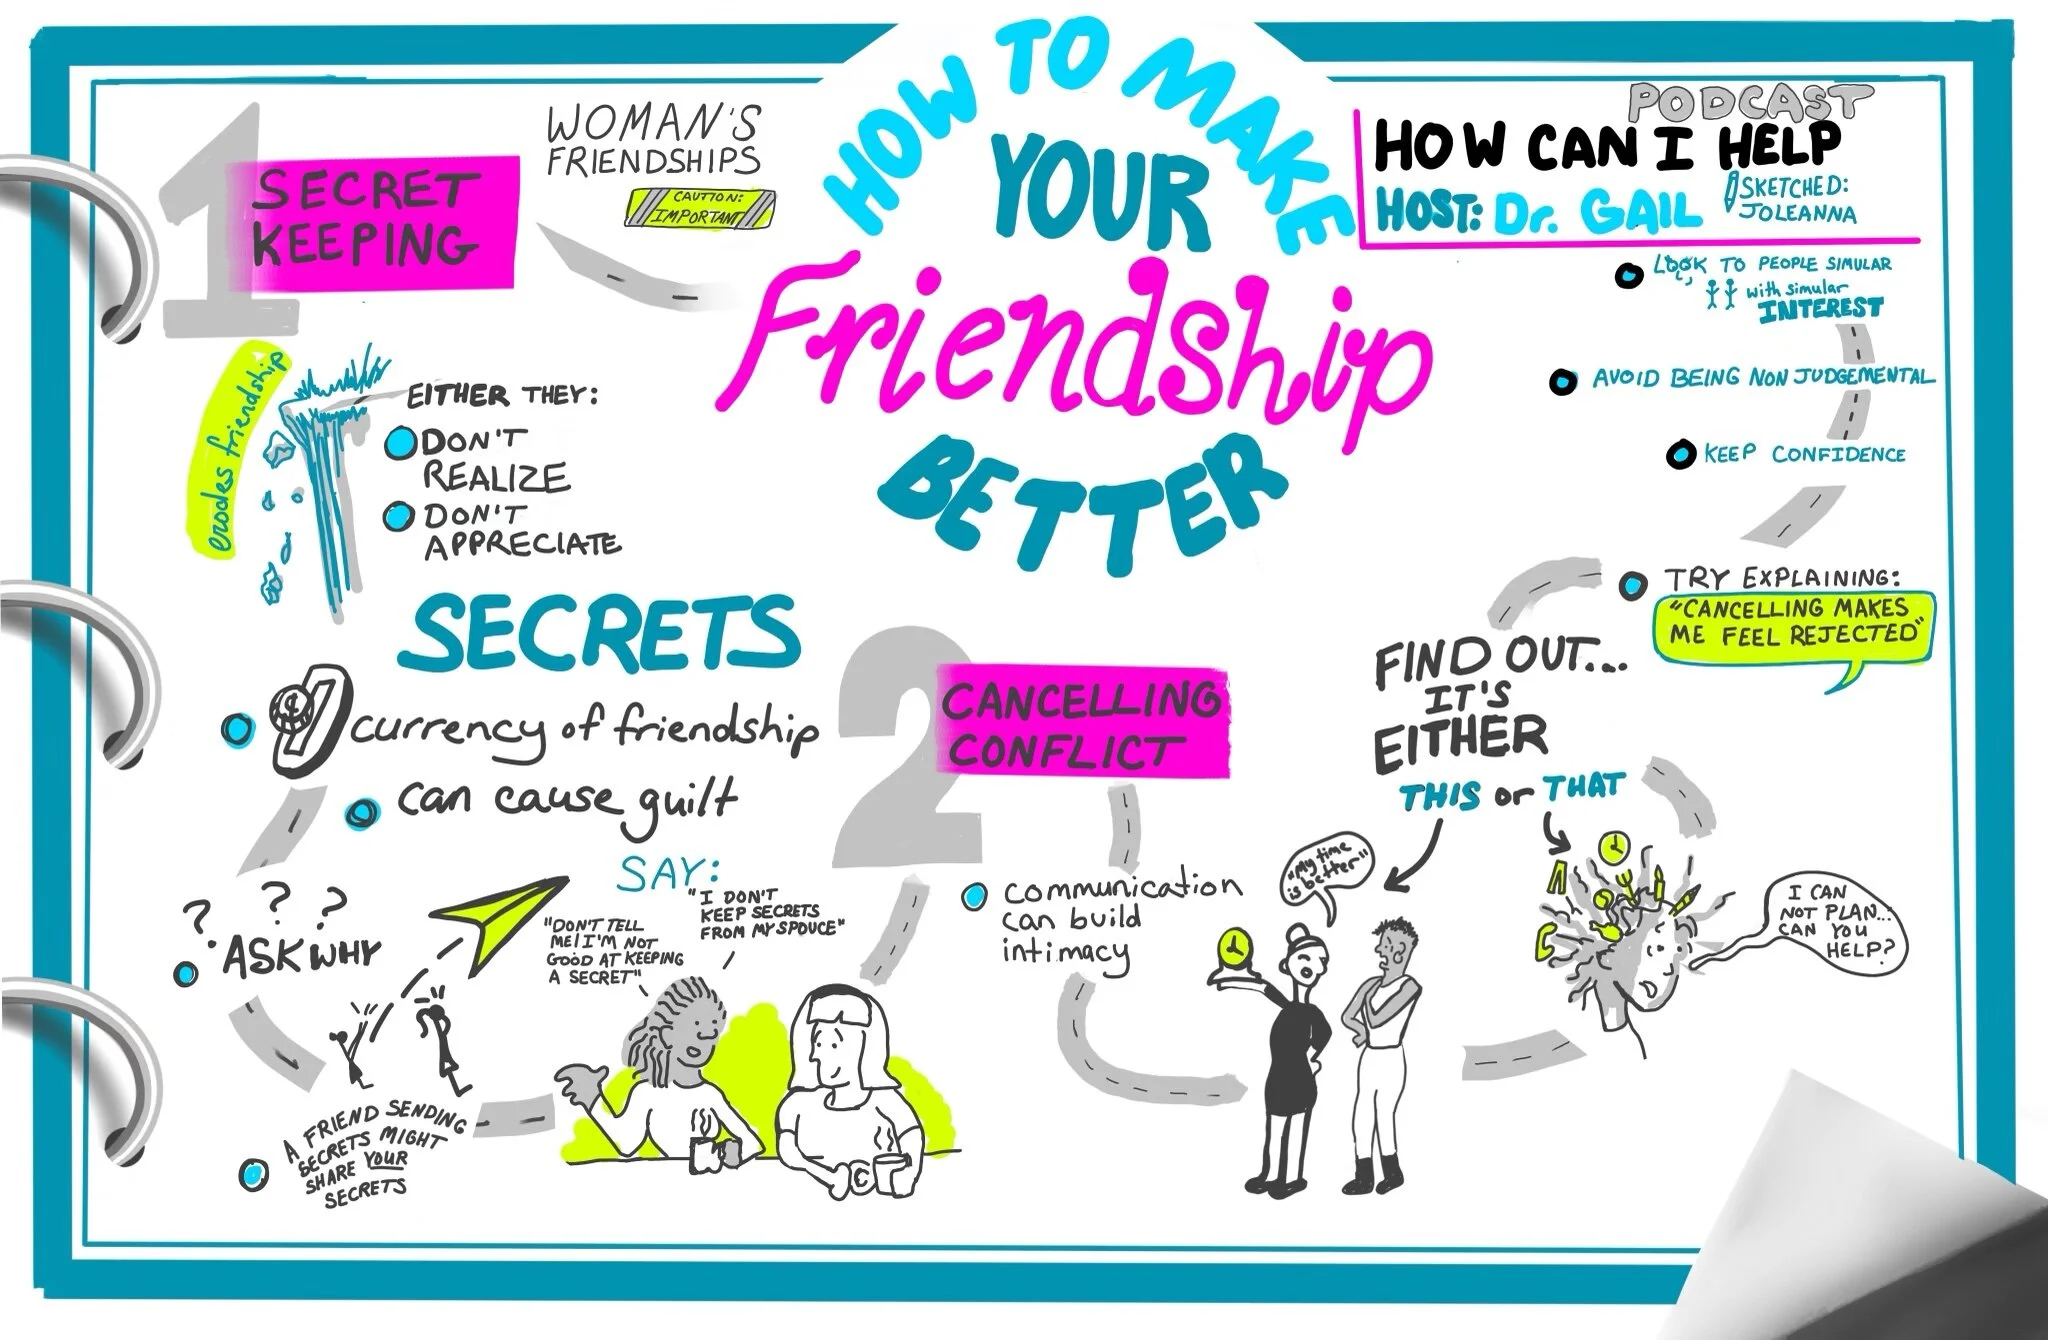 HOW TO MAKE
YOUR
Friendship
BETTER
PODCAST
HOW CAN I HELP
HOST: Dr. GAIL
SKETCHED:
JOLEANNA
WOMAN'S
FRIENDSHIPS
CAUTION:
IMPORTANT
1
SECRET
KEEPING
erodes friendship
EITHER THEY:
DON'T
REALIZE
DON'T
APPRECIATE
SECRETS
¢
currency of friendship
can cause guilt
? ? ?
ASK WHY
A FRIEND SENDING
SECRETS MIGHT
SHARE YOUR
SECRETS
SAY:
"DON'T TELL
ME! I'M NOT
GOOD AT KEEPING
A SECRET"
"I DON'T
KEEP SECRETS
FROM MY SPOUCE"
2
CANCELLING
CONFLICT
communication
can build
intimacy
FIND OUT...
IT'S
EITHER
THIS or THAT
"My time
is better"
I CAN
NOT PLAN...
CAN YOU
HELP?
TRY EXPLAINING:
"CANCELLING MAKES
ME FEEL REJECTED"
KEEP CONFIDENCE
AVOID BEING NON JUDGEMENTAL
LOOK TO PEOPLE SIMULAR
with simular
INTEREST